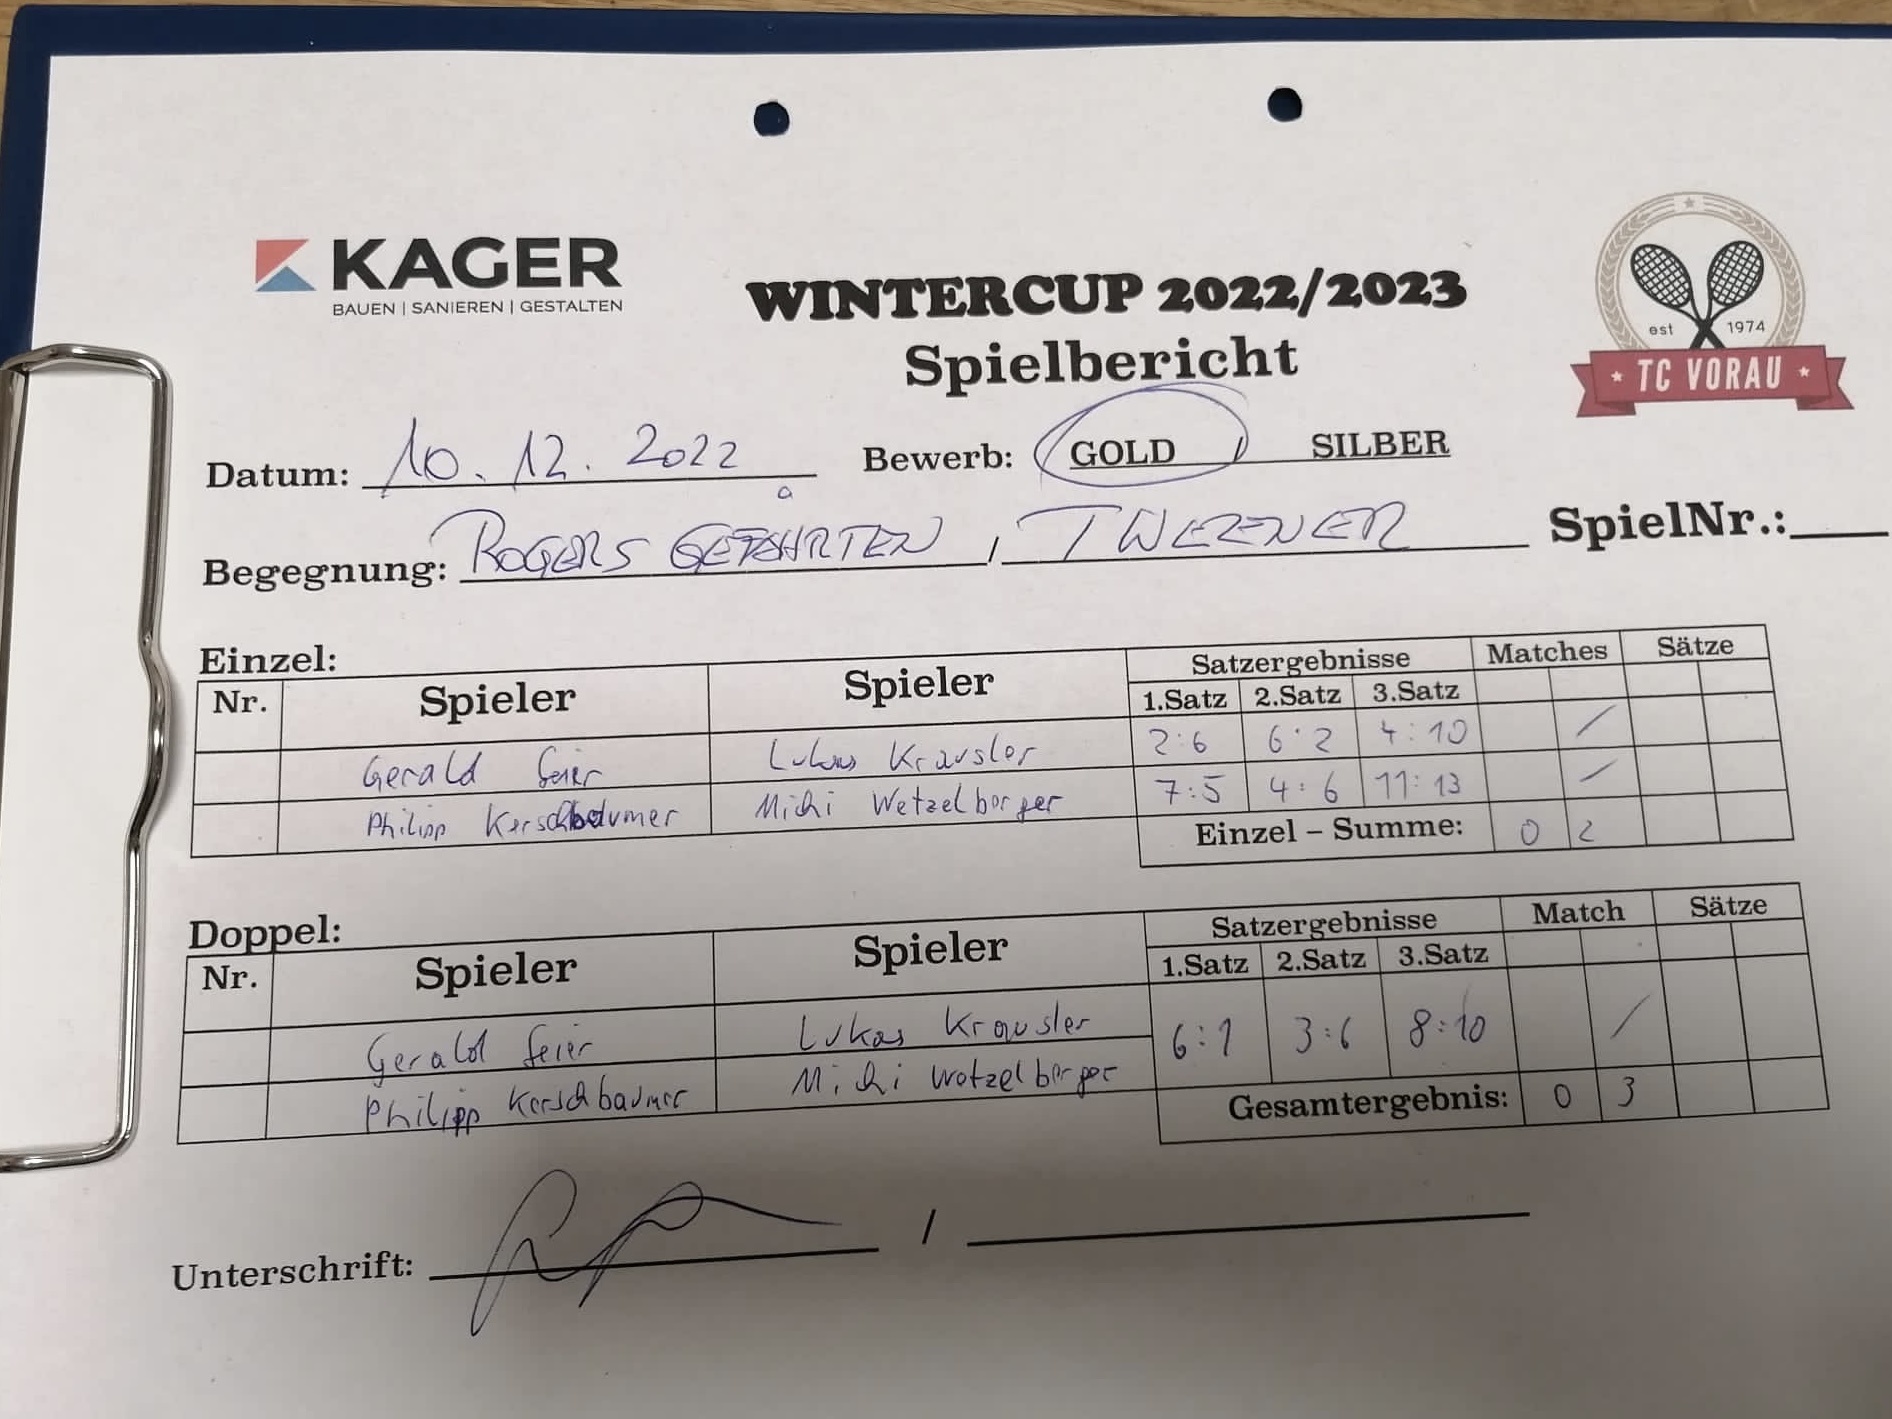 KAGER
BAUEN | SANIEREN | GESTALTEN
WINTERCUP 2022/2023
Spielbericht
est 1974
TC VORAU
Datum: 10.12.2022 Bewerb: GOLD / SILBER
Begegnung: ROGERS GEFÄHRTEN / TWEENER SpielNr.:
Einzel:
Nr. Spieler Spieler Satzergebnisse Matches Sätze
1.Satz 2.Satz 3.Satz
Gerald Feier Lukas Krausler 2:6 6:2 4:10 /
Philipp Kerschbaumer Michi Wetzelberger 7:5 4:6 11:13 /
Einzel – Summe: 0 2
Doppel:
Nr. Spieler Spieler Satzergebnisse Match Sätze
1.Satz 2.Satz 3.Satz
Gerald Feier Lukas Krausler 6:1 3:6 8:10 /
Philipp Kerschbaumer Michi Wetzelberger
Gesamtergebnis: 0 3
Unterschrift: /